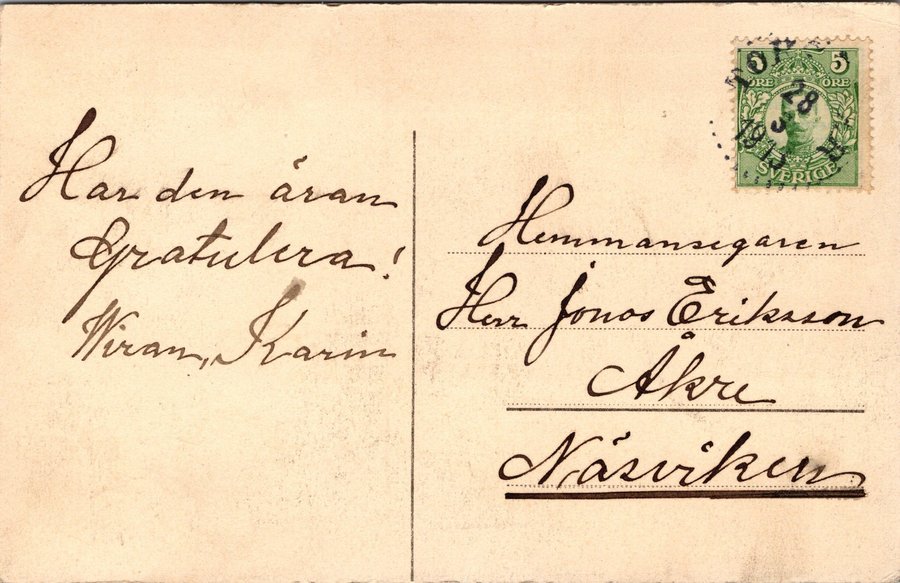 Har den äran
Gratulera!
Wiran, Karin
5
ÖRE ÖRE
28
3
SVERIGE
Hemmansegaren
Herr Jonas Eriksson
Åkre
Näsviken